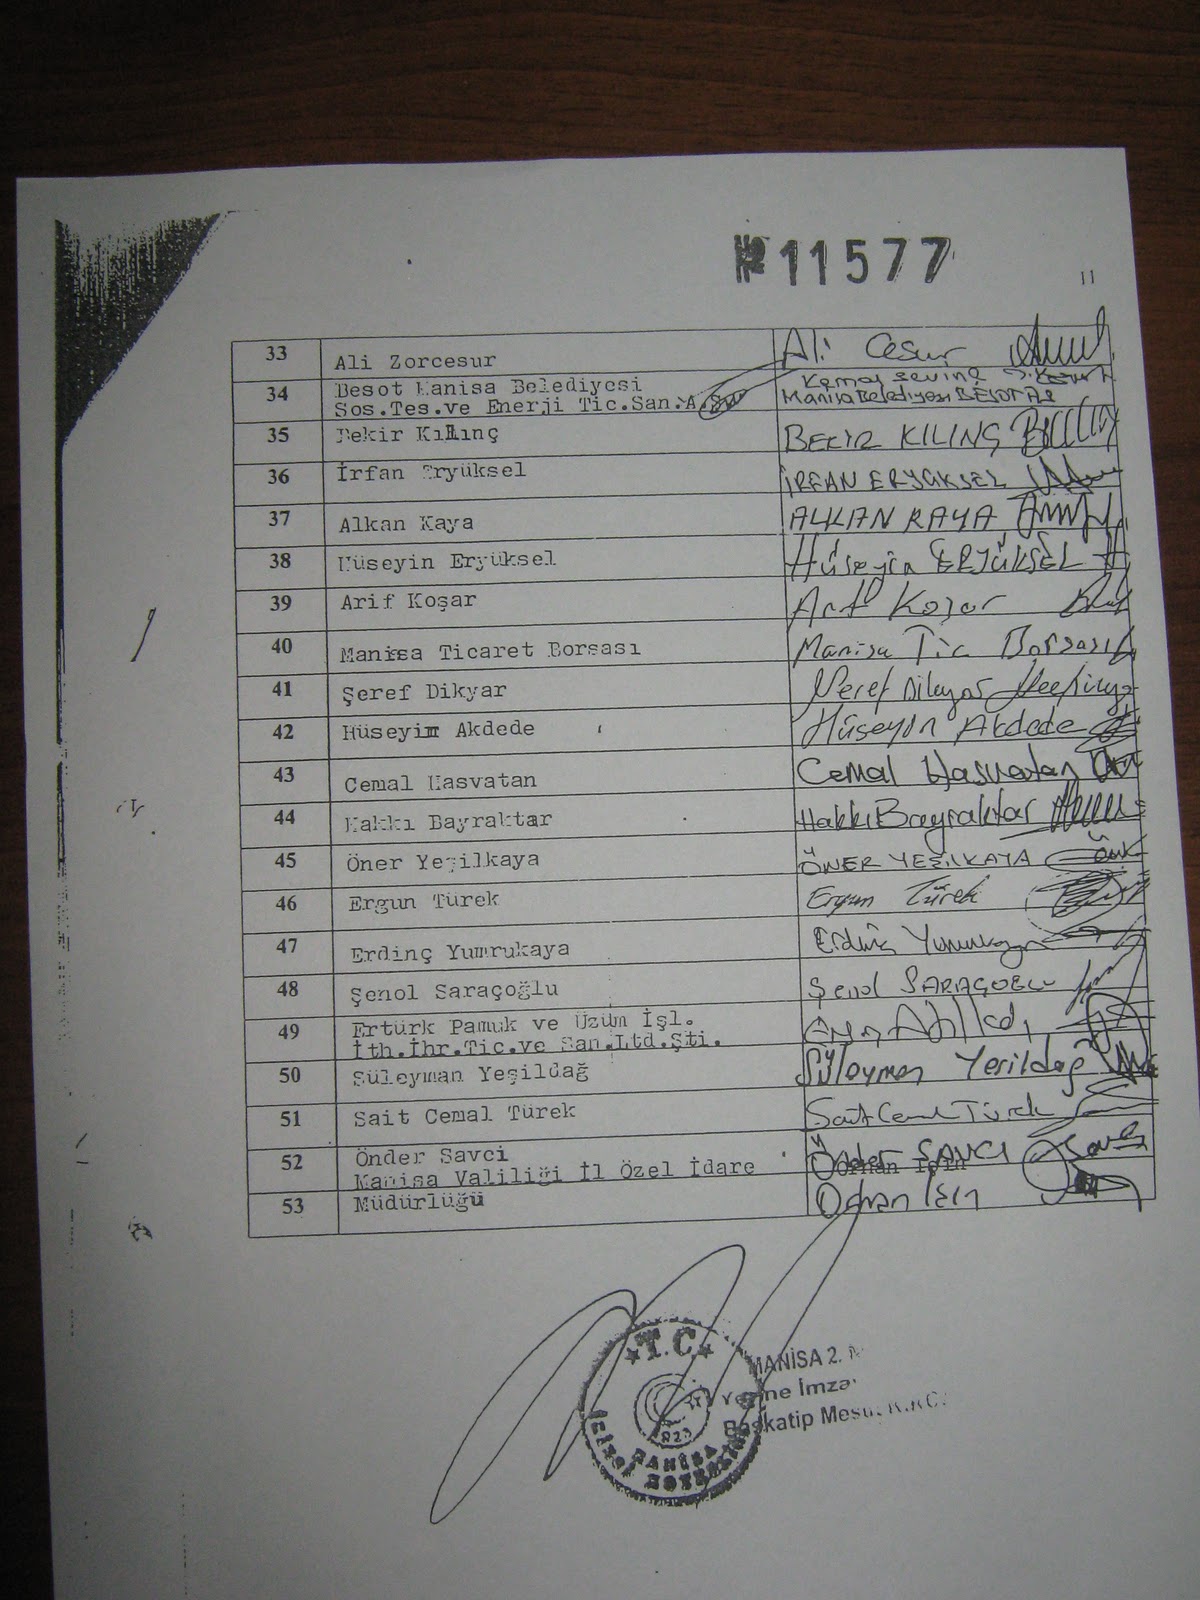 № 11577
11
33 Ali Zorcesur Ali Cesur
34 Besot Manisa Belediyesi Kemal Sevinç
Sos.Tes.ve Enerji Tic.San.A.Ş. Manisa Belediyesi BESOT AŞ
35 Bekir Kılınç BEKİR KILINÇ
36 İrfan Eryüksel İRFAN ERYÜKSEL
37 Alkan Kaya ALKAN KAYA
38 Hüseyin Eryüksel Hüseyin ERYÜKSEL
39 Arif Koşar Arif Koşar
40 Manisa Ticaret Borsası Manisa Tic Borsası
41 Şeref Dikyar Şeref Dikyar
42 Hüseyim Akdede Hüseyin Akdede
43 Cemal Hasvatan Cemal Hasvatan
44 Hakkı Bayraktar Hakkı Bayraktar
45 Öner Yeşilkaya ÖNER YEŞİLKAYA
46 Ergun Türek Ergun Türek
47 Erdinç Yumrukaya Erdinç Yumrukaya
48 Şenol Saraçoğlu Şenol SARAÇOĞLU
49 Ertürk Pamuk ve Üzüm İşl.
İth.İhr.Tic.ve San.Ltd.Şti.
50 Süleyman Yeşildağ Süleyman Yeşildağ
51 Sait Cemal Türek Sait Cemal Türek
52 Önder Savci Önder SAVCI
Manisa Valiliği İl Özel İdare Orhan İçin
53 Müdürlüğü Orhan İçin
T.C.
MANİSA 2.
Yerine İmza
Başkatip Mesut
MANİSA
İKİNCİ NOTERLİĞİ